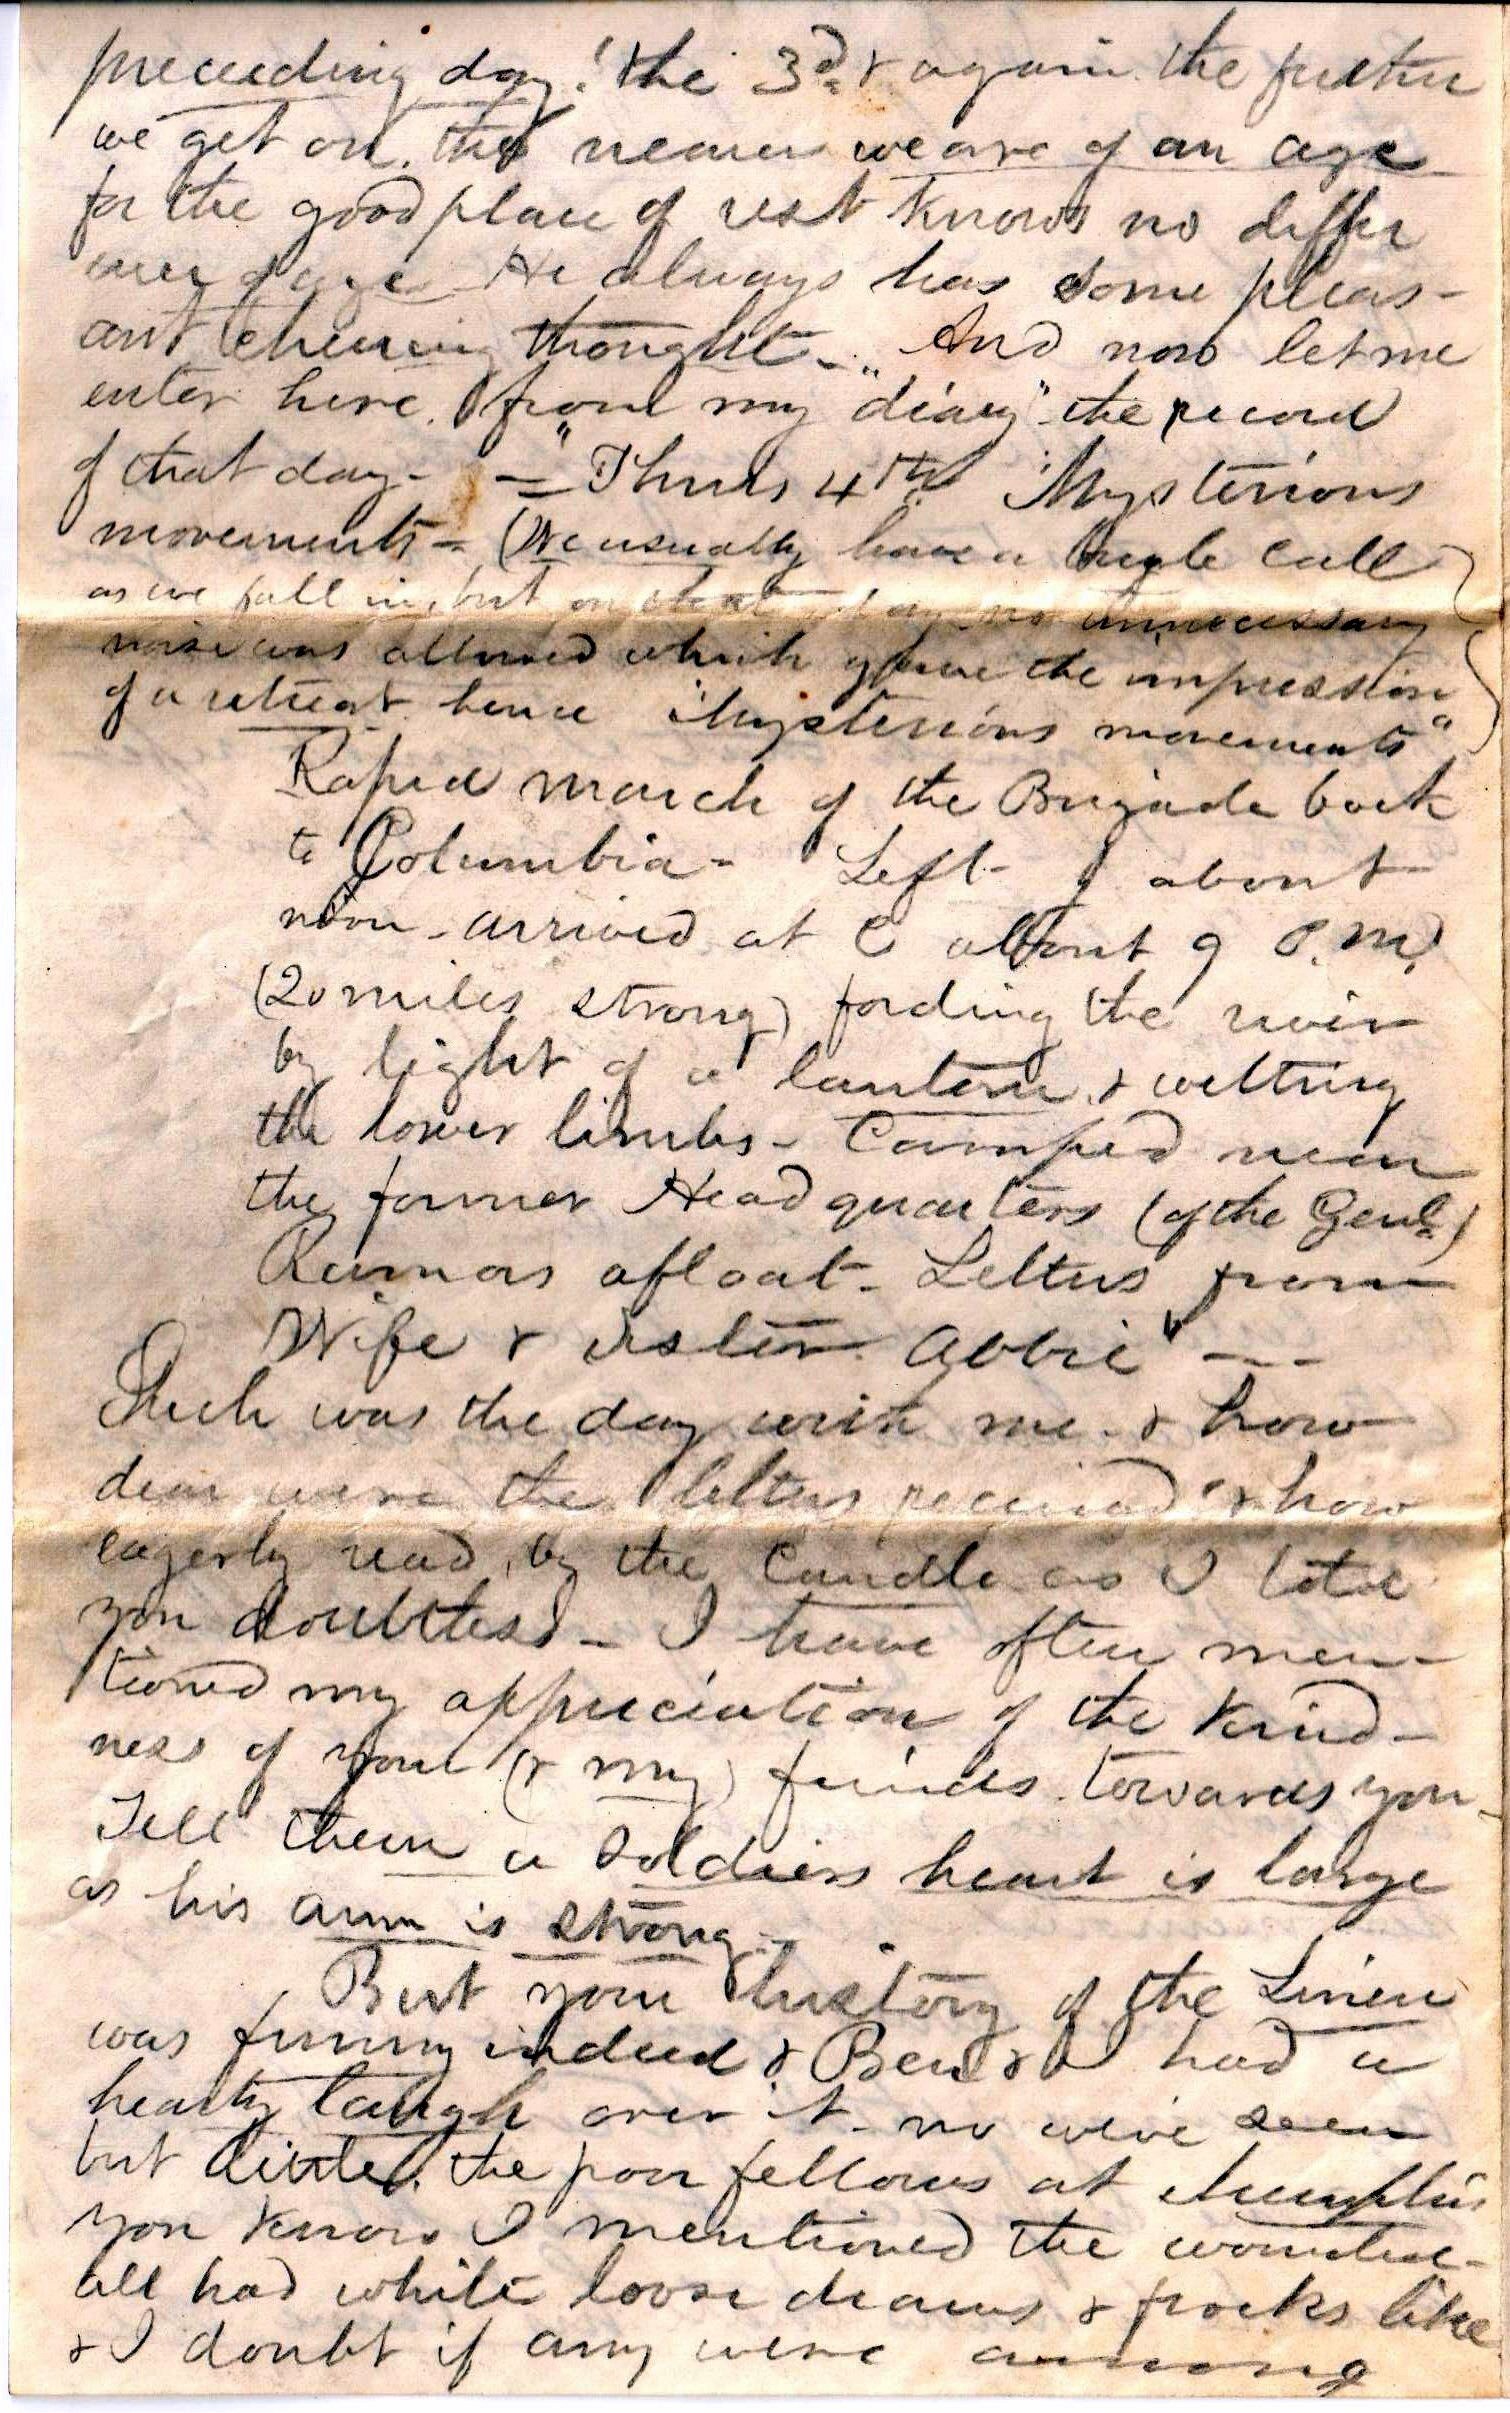 preceeding day! the 3d. & again the further
we get on, the nearer we are of an age
for the good place of rest knows no differ
ence of age - He always has some pleas-
ant cheering thought - " And now let me
enter here from my "diary" the record
of that day - = "Thurs 4th "Mysterious
movements - (We usually have a bugle call
as we fall in, but on that day no unnecessary
noise was allowed which gave the impression
of a retreat hence "Mysterious movements"
Rapid march of the Brigade back
to Columbia - Left about
noon - arrived at C about 9 P.M.
(20 miles strong) fording the river
by light of a lantern & wetting
the lower limbs - Camped near
the former Head quarters (of the Genl.)
Rumors afloat - Letters from
Wife & sister Abbie" - -
Such was the day with me - & how
dear were the letters received & how
eagerly read by the Candle as I told
you doubtless - I have often men-
tioned my appreciation of the kind-
ness of your (& my) friends towards you -
Tell them a soldiers heart is large
as his arm is strong -
But your history of the Linen
was funny indeed & Ben & I had a
hearty laugh over it - no we've seen
but little. the poor fellows at
you know I mentioned the wounded -
all had white loose drawers & frocks like
& I doubt if any were among